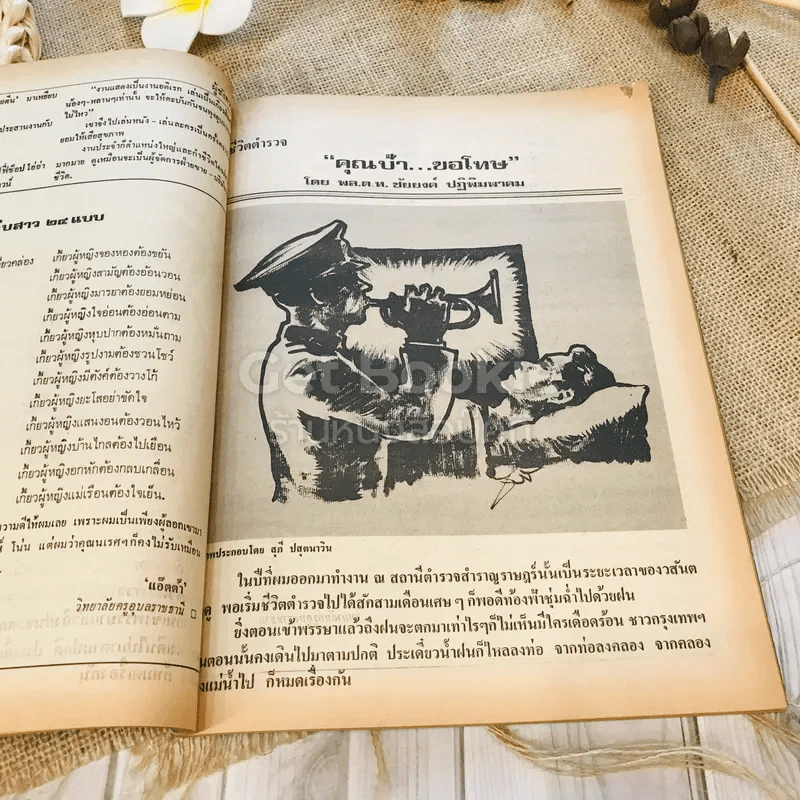 "งานแสดงเป็นงานอดิเรก
มาเหยียบ น้องๆ-หลานๆเท่านั้น
ไม่ไหว"
ประสานงานกับ เขาจึงไปเล่นหนัง-เล่นละครเป็นครั้ง
ยอมให้เสียสุขภาพ
งานประจำก็ตำแหน่งใหญ่และกำ
มากมาย ดูเหมือนจะเป็นผู้จัดการฝ่ายขาย
ชีวิต.
บสาว ๒๔ แบบ
เกี้ยวผู้หญิงของหองต้องขยัน
เกี้ยวผู้หญิงสามัญต้องอ้อนวอน
เกี้ยวผู้หญิงมารยาต้องยอมหย่อน
เกี้ยวผู้หญิงใจอ่อนต้องอ่อนตาม
เกี้ยวผู้หญิงหุบปากต้องหมั่นถาม
เกี้ยวผู้หญิงรูปงามต้องชวนโชว์
เกี้ยวผู้หญิงมีตังค์ต้องวางโก้
เกี้ยวผู้หญิงยะโสอย่าขัดใจ
เกี้ยวผู้หญิงแสนงอนต้องวอนไหว้
เกี้ยวผู้หญิงบ้านไกลต้องไปเยือน
เกี้ยวผู้หญิงอกหักต้องกลบเกลื่อน
เกี้ยวผู้หญิงแม่เรือนต้องใจเย็น.
ความดีให้ผมเลย เพราะผมเป็นเพียงผู้ลอกเขามา
โน่น แต่ผมว่าคุณนเรศๆก็คงไม่รับเหมือน
'แอ๊ตต้า'
วิทยาลัยครูอุบลราชธานี
ชีวิตตำรวจ
"คุณป้า...ขอโทษ"
โดย พล.ต.ท. ชัยยงค์ ปฏิพิมพาคม
Get Bookie
ร้านหนังสือมือ
ภาพประกอบโดย สุภี ปสุตนาวิน
ในปีที่ผมออกมาทำงาน ณ สถานีตำรวจสำราญราษฎร์นั้นเป็นระยะเวลาของวสันต
ดู พอเริ่มชีวิตตำรวจไปได้สักสามเดือนเศษ ๆ ก็พอดีท้องฟ้าชุ่มฉ่ำไปด้วยฝน
ยิ่งตอนเข้าพรรษาแล้วถึงฝนจะตกมาเท่าไรๆก็ไม่เห็นมีใครเดือดร้อน ชาวกรุงเทพฯ
นตอนนั้นคงเดินไปมาตามปกติ ประเดี๋ยวน้ำฝนก็ไหลลงท่อ จากท่อลงคลอง จากคลอง
งแม่น้ำไป ก็หมดเรื่องกัน